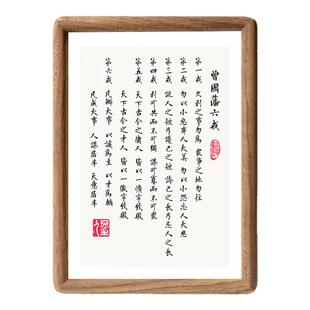 曾國藩六戒
第一戒 久利之事勿爲 衆爭之地勿往
第二戒 勿以小惡棄人大美 勿以小怨忘人大恩
第三戒 說人之短乃護己之短 誇己之長乃忌人之長
第四戒 利可共而不可獨 謀可寡而不可衆
第五戒 天下古今之庸人 皆以一惰字致敗
天下古今之才人 皆以一傲字致敗
第六戒 凡辦大事 以識爲主 以才爲輔
凡成大事 人謀居半 天意居半